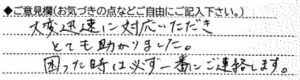 ◆ご意見欄(お気づきの点などご自由にご記入下さい。)
大変迅速に対応いただき
とても助かりました。
困った時は必ず一番にご連絡します。